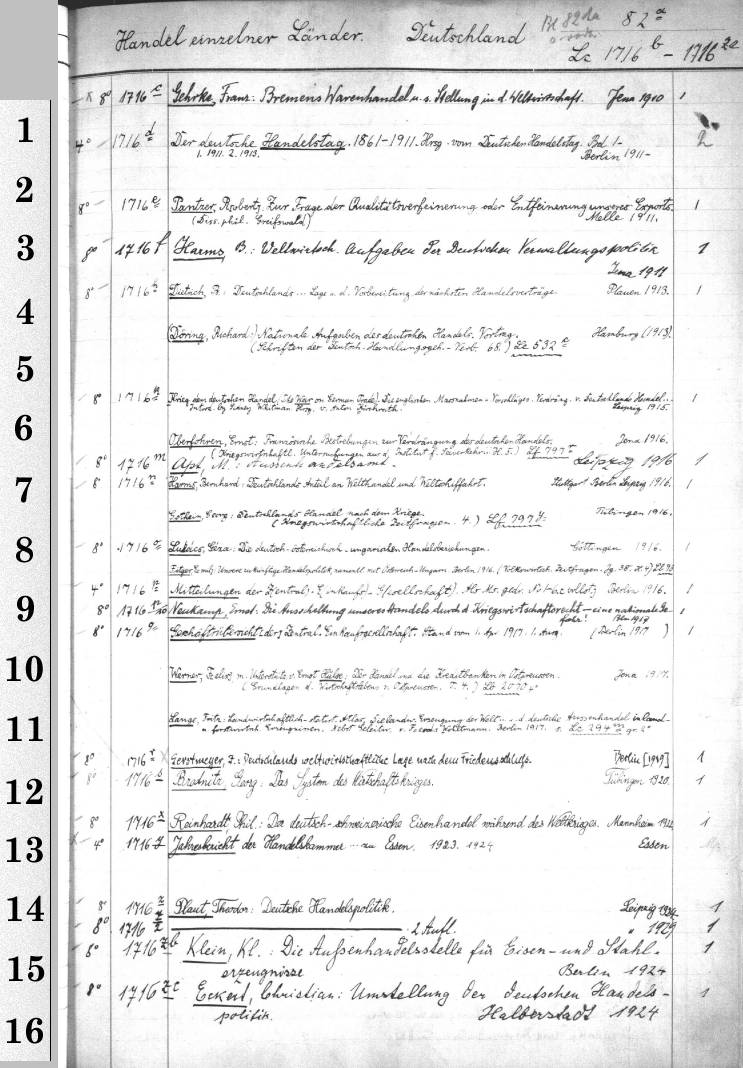 Handel einzelner Länder. Deutschland 82 a
Lc 1716 b – 1716 zc
8° 1716 c Gehrke, Franz: Bremens Warenhandel u. s. Stellung in d. Weltwirtschaft. Jena 1910 1
1
4° 1716 d Der deutsche Handelstag. 1861–1911. Hrsg. vom Deutschen Handelstag. Bd. 1– 2
1. 1911. 2. 1913. Berlin 1911–
2
8° 1716 e Pantzer, Robert: Zur Frage der Qualitätsverfeinerung oder Entfeinerung unseres Exports. 1
(Diss. phil. Greifswald) Melle 1911.
3
8° 1716 f Harms, B.: Weltwirtsch. Aufgaben der Deutschen Verwaltungspolitik 1
Jena 1911
8° 1716 Dietrich, R.: Deutschlands ... Lage u. d. Vorbereitung der nächsten Handelsverträge. Plauen 1913. 1
4
(Döring, Richard:) Nationale Aufgaben des deutschen Handels. Vortrag. Hamburg (1913).
(Schriften der Deutsch. Handlungsgeh.-Verb. 68.) Lc 532
5
8° 1716 Krieg dem deutschen Handel. (The War on German Trade). Die englischen Massnahmen Vorschläge z. Verdräng. v. Deutschlands Handel... 1
Introd. by Sidney Whitman Hrsg. v. Anton Kirchrath. Leipzig 1915.
6
Oberfohren, Ernst: Französische Bestrebungen zur Verdrängung des deutschen Handels. Jena 1916.
(Kriegswirtschaftl. Untersuchungen aus d. Institut f. Seeverkehr. H. 5.) Lf 797
8° 1716 m Apt, M.: Aussenhandelsamt. Leipzig 1916 1
7
8° 1716 n Harms, Bernhard: Deutschlands Anteil an Welthandel und Weltschiffahrt. Stuttgart Berlin Leipzig 1916. 1
Gothein, Georg: Deutschlands Handel nach dem Kriege. Tübingen 1916.
(Kriegswirtschaftliche Zeitfragen. 4.) Lf 797
8
8° 1716 o Lukács, Géza: Die deutsch-österreichisch-ungarischen Handelsbeziehungen. Göttingen 1916. 1
4° 1716 p Mitteilungen der Zentral-Einkaufs-G(esellschaft). Berlin 1916. 1
9
8° 1716 Neukamp, Ernst: Die Ausschaltung unseres Handels durch d. Kriegswirtschaftsrecht – eine nationale Ge- 1
fahr! Bln 1917
8° 1716 q Geschäftsübersicht [der] Zentral-Einkaufsgesellschaft. Stand vom 1. Apr. 1917. (Berlin 1917) 1
10
Werner, Felix, m. Unterstütz. v. Ernst Hülse: Der Handel und die Kreditbanken in Ostpreussen. Jena 1917.
(Grundlagen d. Wirtschaftslebens v. Ostpreussen. T. 4.) Lb 2070
11
Lange, Fritz: Landwirtschaftlich-statist. Atlas, Die landw. Erzeugung der Welt ... d. deutsche Aussenhandel in land-
u. forstwirtsch. Erzeugnissen. Nebst Geleitw. Berlin 1917. s. Lc 294 m gr. 4°
8° 1716 r Gerstmeyer, J.: Deutschlands weltwirtschaftliche Lage nach dem Friedensschluss. Berlin [1919] 1
12
8° 1716 s Brodnitz, Georg: Das System des Wirtschaftskrieges. Tübingen 1920. 1
8° 1716 x Reinhardt, Phil.: Der deutsch-schweizerische Eisenhandel während des Weltkrieges. Mannheim 1922 1
13
4° 1716 y Jahresbericht der Handelskammer ... zu Essen. 1923. 1924 Essen
14
8° 1716 z Plaut, Theodor: Deutsche Handelspolitik. Leipzig 1924 1
8° 1716 z 2. Aufl. " 1929 1
8° 1716 zb Klein, Kl.: Die Außenhandelsstelle für Eisen- und Stahl- 1
15
erzeugnisse Berlin 1924
8° 1716 zc Eckert, Christian: Umstellung der deutschen Handels- 1
politik. Halberstadt 1924
16